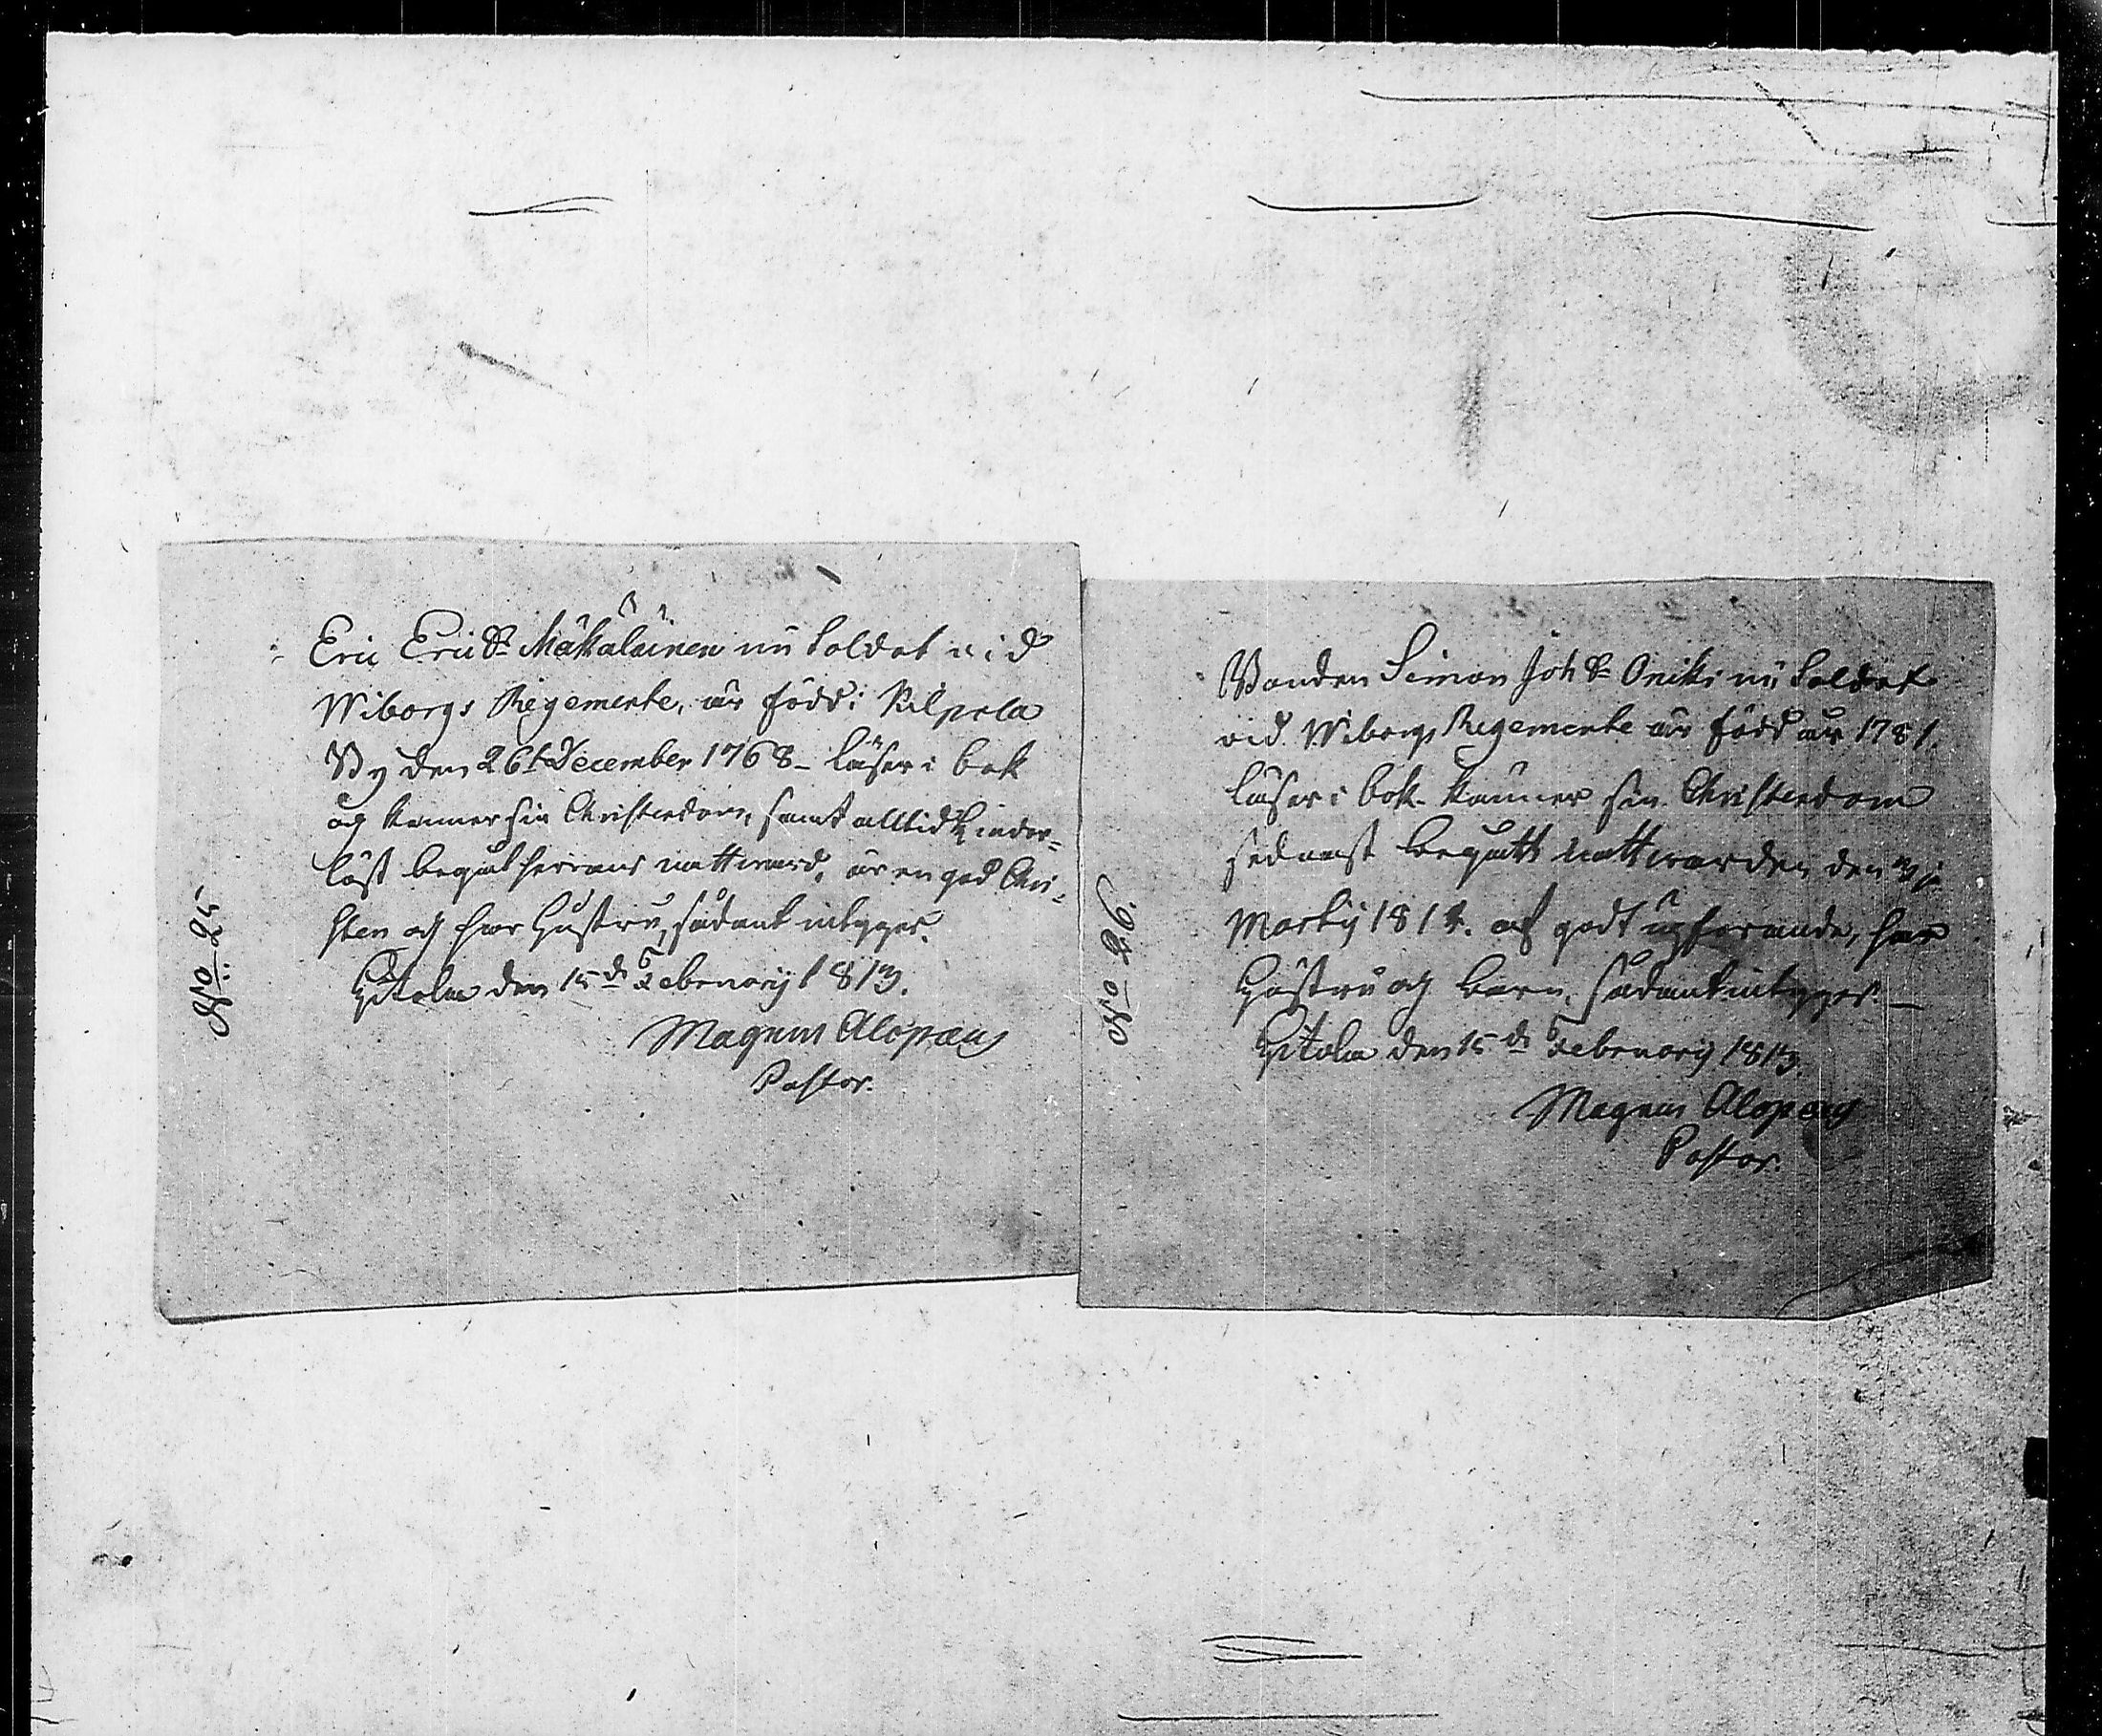 No: 25
Eric Erics: Mäkäläinen nu Soldat vid
Wiborgs Regemente, är född i Kilpola
By den 26te December 1768 – läser i bok
og känner sin Christendom, samt alltid
löst begåt herrans nattward, är en god Chri-
sten og har Hustru, sådant intygar.
Hitola den 15de Februarij 1813.
Magnus Alopæus
Pastor.
No 26.
Bonden Simon Joh S: Oniki nu Soldat
vid Wiborgs Regemente är född år 1781.
läser i bok känner sin Christendom
sednast begått nattwarden den
Martij 181 af godt uppförande, har
Hustru og barn, sådant intygar –
Hitola den 15de Februarij 1813.
Magnus Alopæus
Pastor.